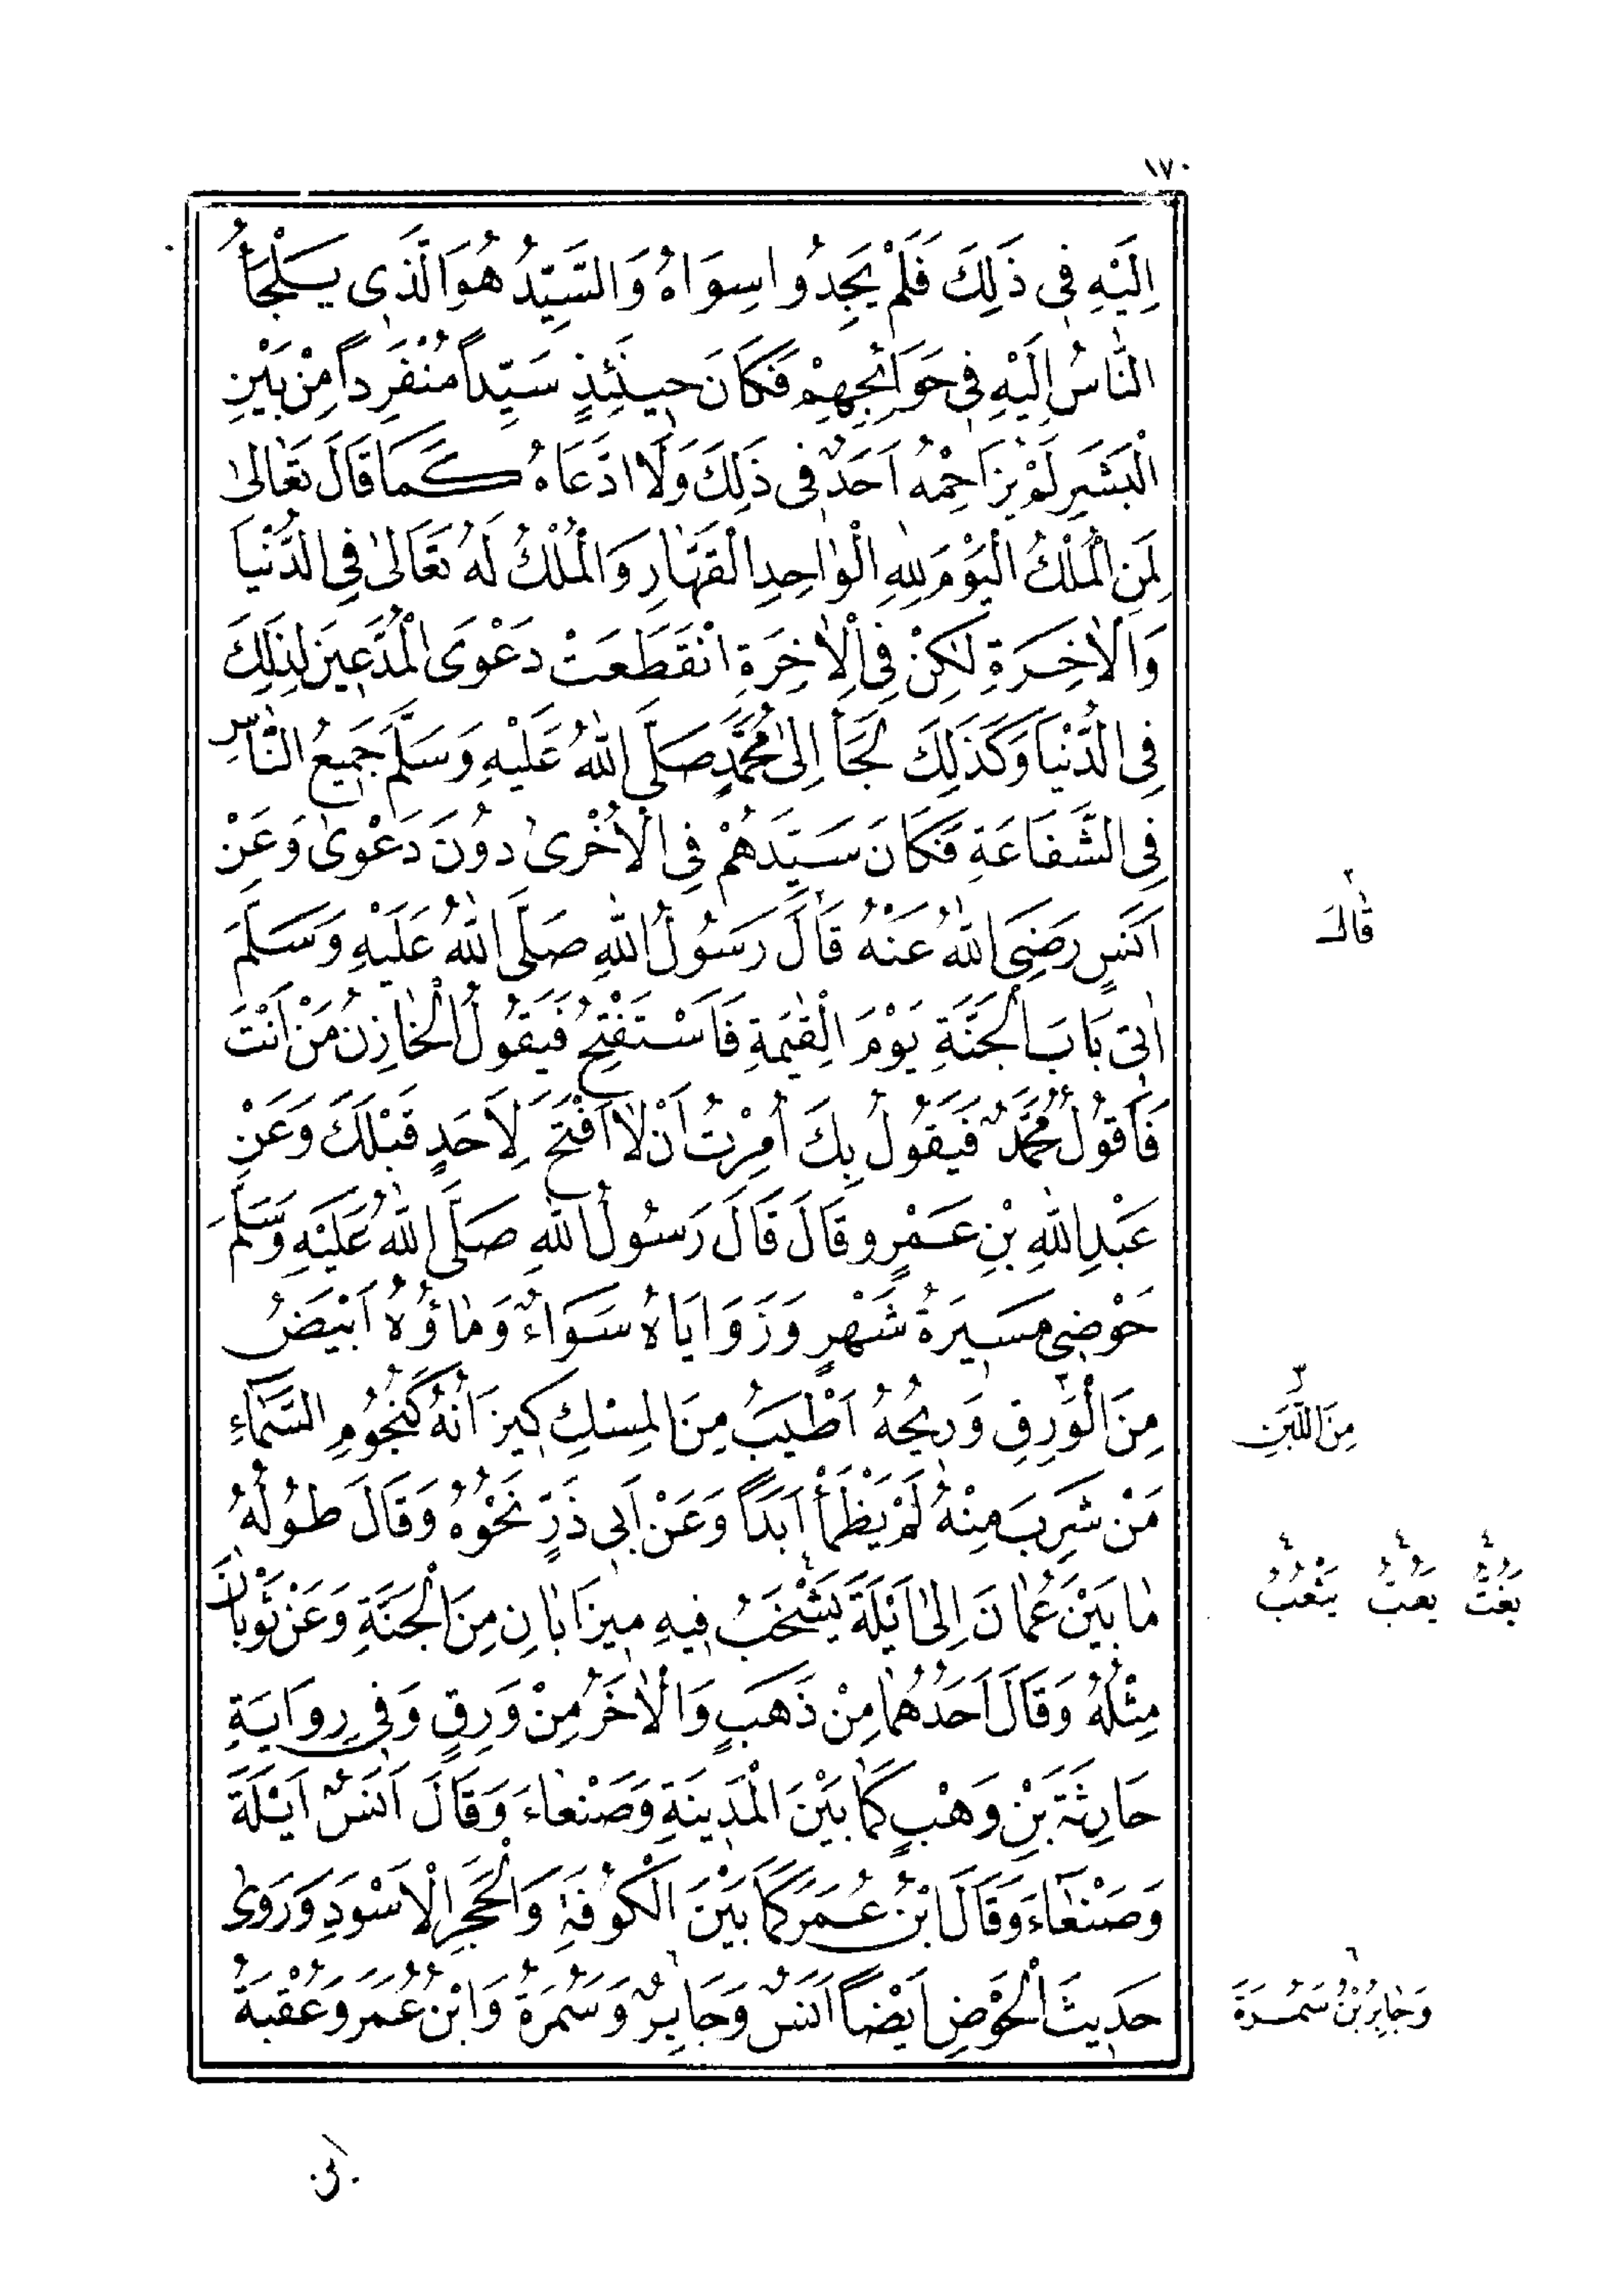 ١٧٠
اِلَيْهِ فِى ذَلِكَ فَلَمْ يَجِدُوا سِوَاهُ وَالسَّيِّدُ هُوَ الَّذِى يَلْجَأُ
النَّاسُ اِلَيْهِ فِى حَوَائِجِهِمْ فَكَانَ حِينَئِذٍ سَيِّداً مُنْفَرِداً مِنْ بَيْنِ
الْبَشَرِ لَمْ يُزَاحِمْهُ اَحَدٌ فِى ذَلِكَ وَلَا ادَّعَاهُ كَمَا قَالَ تَعَالٰى
لِمَنِ الْمُلْكُ الْيَوْمَ لِلّٰهِ الْوٰاحِدِ الْقَهّٰارِ وَالْمُلْكُ لَهُ تَعَالٰى فِى الدُّنْيَا
وَالْاٰخِرَةِ لٰكِنْ فِى الْاٰخِرَةِ انْقَطَعَتْ دَعْوَى الْمُدَّعِينَ لِذَلِكَ
فِى الدُّنْيَا وَكَذَلِكَ لَجَأَ اِلٰى مُحَمَّدٍ صَلَّى اللّٰهُ عَلَيْهِ وَسَلَّمَ جَمِيعُ النّٰاسِ
فِى الشَّفَاعَةِ فَكَانَ سَيِّدَهُمْ فِى الْاُخْرٰى دُونَ دَعْوٰى وَعَنْ
اَنَسٍ رَضِىَ اللّٰهُ عَنْهُ قَالَ رَسُولُ اللّٰهِ صَلَّى اللّٰهُ عَلَيْهِ وَسَلَّمَ
قَالَ
اٰتِى بَابَ الْجَنَّةِ يَوْمَ الْقِيٰمَةِ فَاَسْتَفْتِحُ فَيَقُولُ الْخَازِنُ مَنْ اَنْتَ
فَاَقُولُ مُحَمَّدٌ فَيَقُولُ بِكَ اُمِرْتُ اَنْ لَا اَفْتَحَ لِاَحَدٍ قَبْلَكَ وَعَنْ
عَبْدِ اللّٰهِ بْنِ عَمْرٍو قَالَ قَالَ رَسُولُ اللّٰهِ صَلَّى اللّٰهُ عَلَيْهِ وَسَلَّمَ
حَوْضِى مَسِيرَةُ شَهْرٍ وَزَوَايَاهُ سَوَاءٌ وَمٰاؤُهُ اَبْيَضُ
مِنَ الْوَرِقِ وَرِيحُهُ اَطْيَبُ مِنَ الْمِسْكِ كِيزَانُهُ كَنُجُومِ السَّمٰاءِ
مِنَ اللَّبَنِ
مَنْ شَرِبَ مِنْهُ لَمْ يَظْمَأْ اَبَدًا وَعَنْ اَبِى ذَرٍّ نَحْوُهُ وَقَالَ طُولُهُ
مٰا بَيْنَ عُمٰانَ اِلٰى اَيْلَةَ يَشْخَبُ فِيهِ مِيزَابٰانِ مِنَ الْجَنَّةِ وَعَنْ ثَوْبٰانَ
يَغُتُّ يَعُبُّ يَثْعَبُ
مِثْلُهُ وَقَالَ اَحَدُهُمٰا مِنْ ذَهَبٍ وَالْاٰخَرُ مِنْ وَرِقٍ وَفِى رِوَايَةِ
حَارِثَةَ بْنِ وَهْبٍ كَمٰا بَيْنَ الْمَدِينَةِ وَصَنْعٰاءَ وَقَالَ اَنَسٌ اَيْلَةَ
وَصَنْعٰاءَ وَقَالَ ابْنُ عُمَرَ كَمٰا بَيْنَ الْكُوفَةِ وَالْحَجَرِ الْاَسْوَدِ وَرَوٰى
حَدِيثَ الْحَوْضِ اَيْضاً اَنَسٌ وَجَابِرٌ وَسَمُرَةُ وَابْنُ عُمَرَ وَعُقْبَةُ
وَجَابِرُ بْنُ سَمُرَةَ